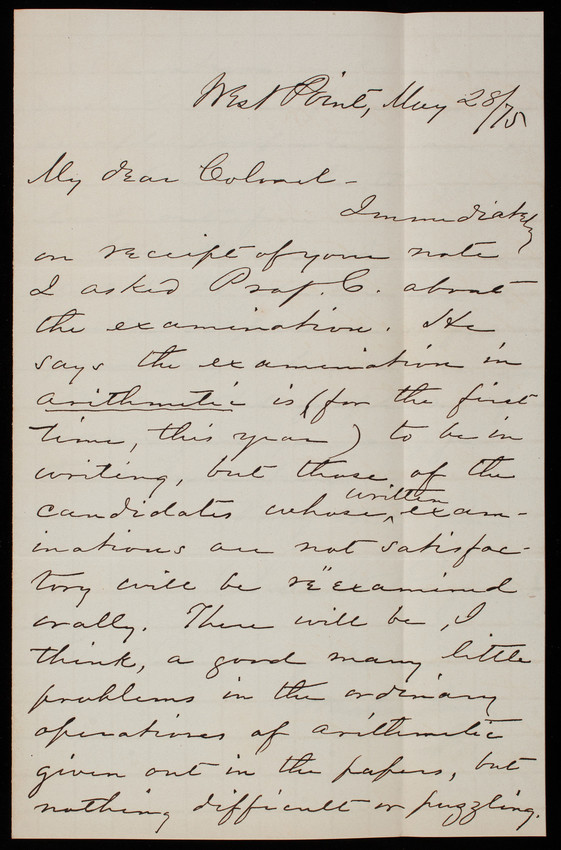 West Point, May 28/75
My dear Colonel -
Immediately
on receipt of your note
I asked Prof. C. about
the examination. He
says the examination in
arithmetic is (for the first
time, this year) to be in
writing, but those of the
candidates whose written exam-
inations are not satisfac-
tory will be re"examined
orally. There will be, I
think, a good many little
problems in the ordinary
operations of arithmetic
given out in the papers, but
nothing difficult or puzzling.